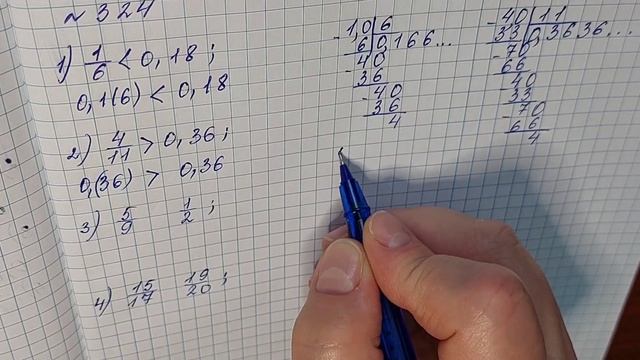 №324
1) 1/6 < 0,18 ;
0,1(6) < 0,18
2) 4/11 > 0,36 ;
0,(36) > 0,36
3) 5/9 1/2 ;
4) 15/17 19/20 ;
- 1,0 | 6
6 | 0,166...
- 40
36
- 40
36
4
- 40 | 11
33 | 0,3636...
- 70
66
- 40
33
- 70
66
4